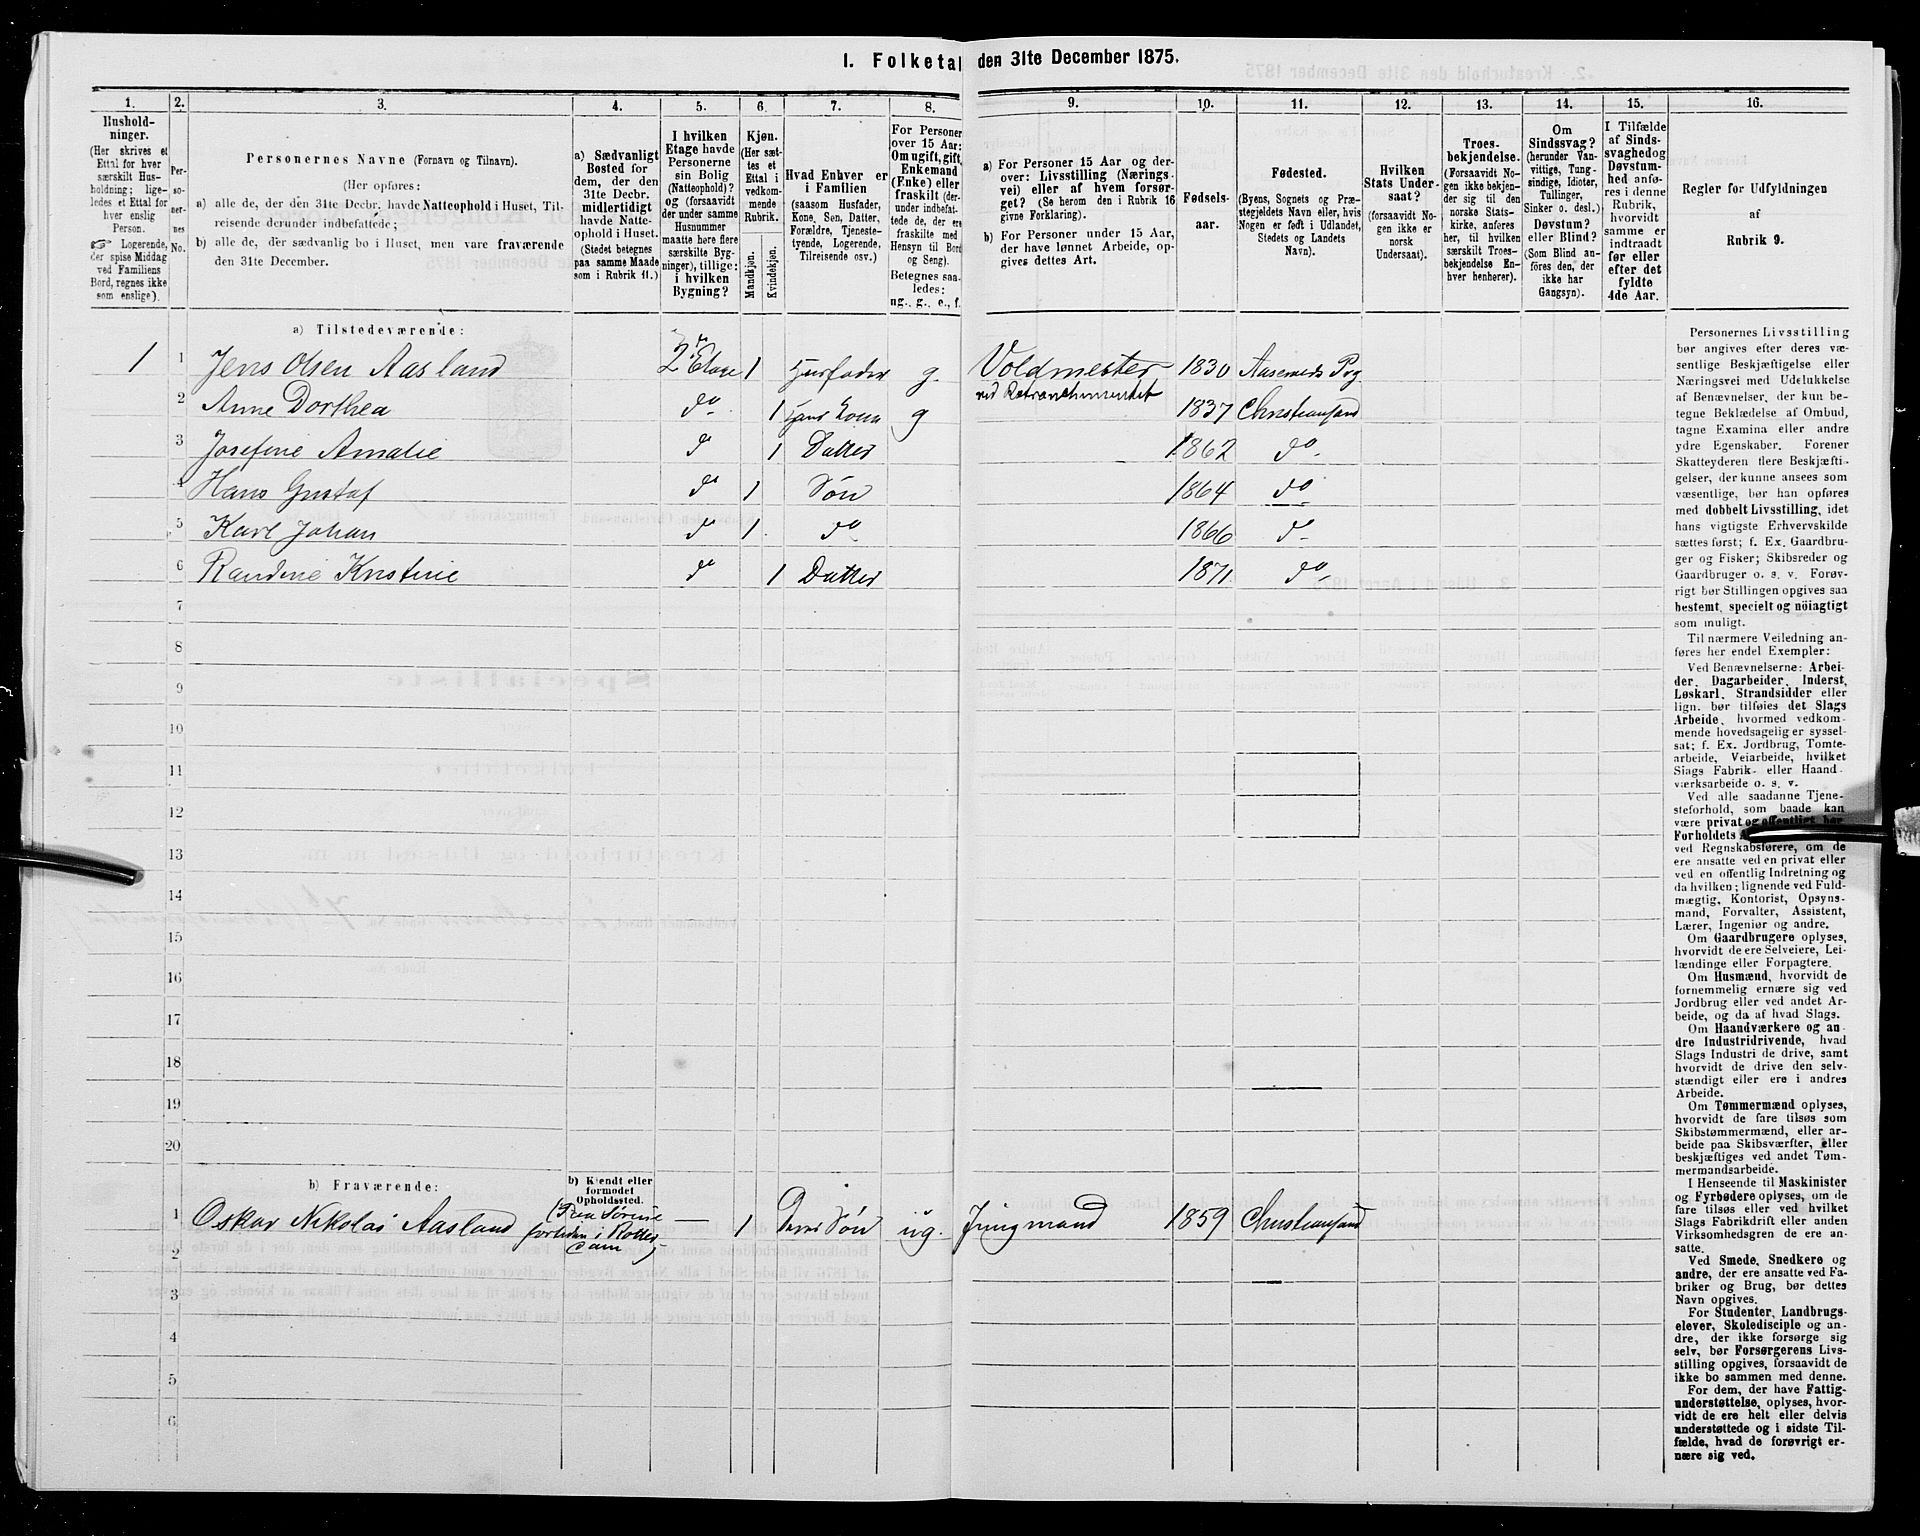 I. Folketal den 31te December 1875.
1. 2. 3. 4. 5. 6. 7. 8. 9. 10. 11. 12. 13. 14. 15. 16.
Hushold-
ninger.
(Her skrives et
Ettal for hver
særskilt Hus-
holdning; lige-
ledes et Ettal for
hver enslig
Person.
☞ Logerende,
der spise Middag
ved Familiens
Bord, regnes ikke
som enslige).
Per-
so-
ner-
nes
No.
Personernes Navne (Fornavn og Tilnavn).
(Her opføres:
a) alle de, der den 31te Decbr. havde Natteophold i Huset, Til-
reisende derunder indbefattede;
b) alle de, der sædvanlig bo i Huset, men vare fraværende
den 31te December.
a) Sædvanligt
Bosted for
dem, der den
31te Decbr.
midlertidigt
havde Natte-
ophold i Huset.
(Stedet betegnes
paa samme Maade
som i Rubrik 11.)
I hvilken
Etage havde
Personerne
sin Bolig
(Natteophold)?
og (forsaavidt
der under samme
Husnummer
maatte høre flere
særskilte Byg-
ninger), tillige:
i hvilken
Bygning?
Kjøn.
(Her sæt-
tes et
Ettal i
vedkom-
mende
Rubrik.
Mandkjøn.
Kvindekjøn.
Hvad Enhver er
i Familien
(saasom Husfader,
Kone, Søn, Datter,
Forældre, Tjeneste-
tyende, Logerende,
Tilreisende osv.)
For Personer
over 15 Aar:
Om ugift, gift,
Enkemand
(Enke) eller
fraskilt (der-
under indbefat-
tede de, der ere
fraskilte med
Hensyn til Bord
og Seng).
Betegnes saa-
ledes:
ug., g., e., f.
a) For Personer 15 Aar og der-
over: Livsstilling (Nærings-
vei) eller af hvem forsør-
get? (Se herom den i Rubrik 16
givne Forklaring).
b) For Personer under 15 Aar,
der have lønnet Arbeide, op-
gives dettes Art.
Fødsels-
aar.
Fødested.
(Byens, Sognets og Præ-
stegjeldets Navn eller, hvis
Nogen er født i Udlandet,
Stedets og Landets
Navn).
Hvilken
Stats Under-
saat?
(forsaavidt No-
gen ikke er
norsk
Undersaat).
Troes-
bekjendelse.
(Forsaavidt No-
gen ikke bekjen-
der sig til den
norske Stats-
kirke, anføres
her, til hvilken
særskilt Troes-
bekjendelse En-
hver henhører).
Om
Sindssvag?
(herunder Van-
vittige, Tung-
sindige, Idioter,
Tullinger,
Sinker o. desl.)
Døvstum?
eller Blind?
(Som Blind an-
føres den, der
ikke har
Gangsyn).
I Tilfælde
af Sinds-
svaghed og
Døvstum-
hed anfø-
res i denne
Rubrik,
hvorvidt
samme er
indtraadt
før eller
efter det
fyldte
4de Aar.
Regler for Udfyldningen
af
Rubrik 9.
a) Tilstedeværende:
1 1 Jens Olsen Aasland 2den Etage 1 Husfader g. Voldmester ved Retranchementet 1830 Aaserøds Prg
2 Anne Dorthea do 1 Hans Kone g 1837 Christiansand
3 Josefine Amalie do 1 Datter 1862 do
4 Hans Gustaf do 1 Søn 1864 do
5 Karl Johan do 1 do 1866 do
6 Randine Kristine do 1 Datter 1871 do
7
8
9
10
11
12
13
14
15
16
17
18
19
20
b) Fraværende:
b) Kjendt eller
formodet
Opholdssted.
1 Oskar Nikolai Aasland (Paa Søreise fortiden i Rotterdam) — 1 Deres Søn ug. Jungmand 1859 Christiansand
2
3
4
5
6
Personernes Livsstilling
bør angives efter deres væ-
sentlige Beskjæftigelse eller
Næringsvei med Udelukkelse
af Benævnelser, der kun be-
tegne Beklædelse af Ombud,
tagne Examina eller andre
ydre Egenskaber. Forener
Skatteyderen flere Beskjæfti-
gelser, der kunne ansees som
væsentlige, bør han opføres
med dobbelt Livsstilling, idet
hans vigtigste Erhvervskilde
sættes først; f. Ex. Gaardbru-
ger og Fisker; Skibsreder og
Gaardbruger o. s. v. Forøv-
rigt bør Stillingen opgives saa
bestemt, specielt og nöiagtigt
som muligt.
Til nærmere Veiledning an-
føres her endel Exempler:
Ved Benævnelserne: Arbei-
der, Dagarbeider, Inderst,
Løskarl, Strandsidder eller
lign. bør tilføies det Slags
Arbeide, hvormed vedkom-
mende hovedsagelig er syssel-
sat; f. Ex. Jordbrug, Tomte-
arbeide, Veiarbeide, hvilket
Slags Fabrik- eller Haand-
værksarbeide o. s. v.
Ved alle saadanne Tjene-
steforhold, som baade kan
være privat og offentligt, bør
Forholdets
ved Regnskabsførere, om de
ere ansatte ved en privat eller
ved en offentlig Indretning og
da hvilken; lignende ved Fuld-
mægtig, Kontorist, Opsyns-
mand, Forvalter, Assistent,
Lærer, Ingeniør og andre.
Om Gaardbrugere oplyses,
hvorvidt de ere Selveiere, Lei-
lændinge eller Forpagtere.
Om Husmænd, hvorvidt de
fornemmelig ernære sig ved
Jordbrug eller ved andet Ar-
beide, og da af hvad Slags.
Om Haandværkere og an-
dre Industridrivende, hvad
Slags Industri de drive, samt
hvorvidt de drive den selv-
stændigt eller ere i andres
Arbeide.
Om Tømmermænd oplyses,
hvorvidt de fare tilsøs som
Skibstømmermænd, eller ar-
beide paa Skibsværfter, eller
beskjæftiges ved andet Tøm-
mermandsarbeide.
I Henseende til Maskinister
og Fyrbødere oplyses, om de
fare tilsøs eller ved hvilket
Slags Fabrikdrift eller anden
Virksomhedsgren de ere an-
satte.
Ved Smede, Snedkere og
andre, der ere ansatte ved Fa-
briker og Brug, bør dettes
Navn opgives.
For Studenter, Landbrugs-
elever, Skoledisciple og an-
dre, der ikke forsørge sig
selv, bør Forsørgerens Livs-
stilling opgives, forsaavidt de
ikke bo sammen med denne.
For dem, der have Fattig-
understøttelse, oplyses, hvor-
vidt de ere helt eller delvis
understøttede og i sidste Til-
fælde, hvad de forøvrigt er-
nære sig ved.